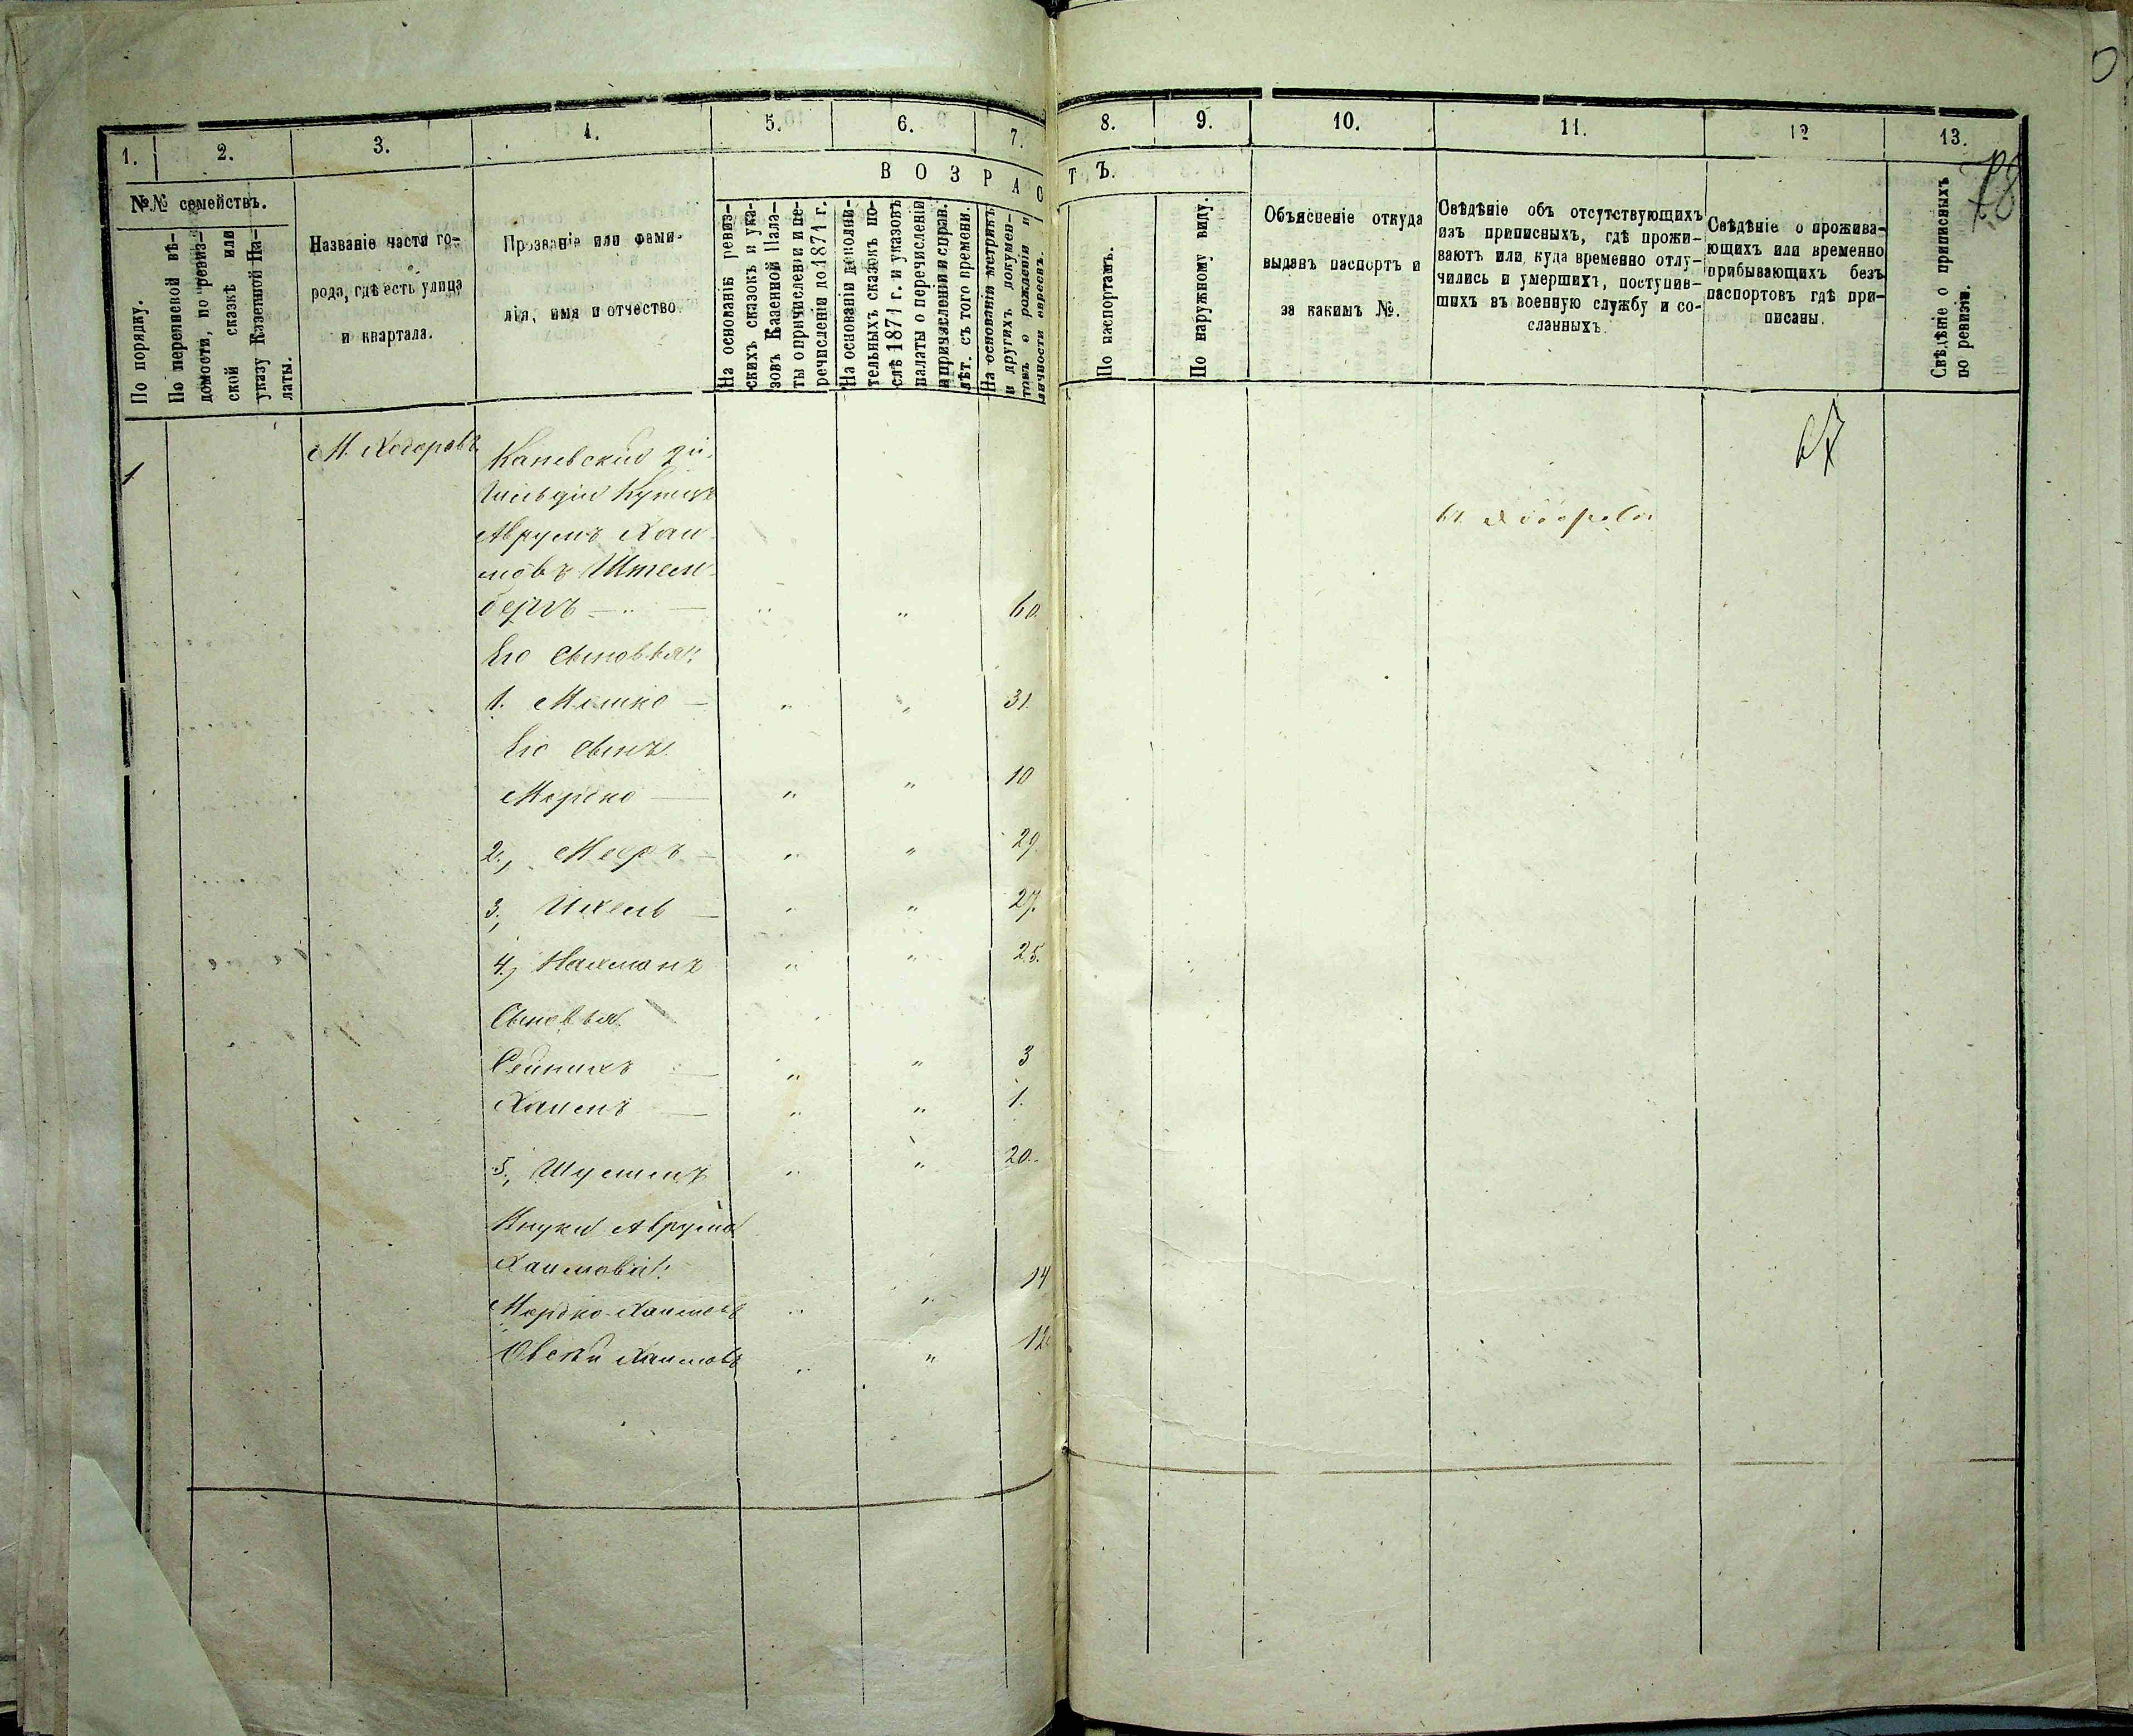 1. 2. 3. 4. 5. 6. 7. 8. 9. 10. 11. 12 13.
78
ВОЗРАСТЪ.
№№ семействъ.
По порядку.
По переписной вѣ-
домости, по ревиз-
ской сказкѣ или
указу Казенной Па-
латы.
Названіе части го-
рода, гдѣ есть улица
и квартала.
Прозваніе или фами-
лія, имя и отчество.
На основаніи ревиз-
скихъ сказокъ и ука-
зовъ Казенной Пала-
ты о причисленіи и пе-
речисленіи до 1871 г.
На основаніи дополни-
тельныхъ сказокъ по-
слѣ 1871 г. и указовъ
палаты о перечисленіи
и причисленіи и справ.
лѣт. съ того времени.
На основаніи метрикъ
и другихъ докумен-
товъ о рожденіи и
личности евреевъ.
По паспортамъ.
По наружному виду.
Объясненіе откуда
выданъ паспортъ и
за какимъ №.
Свѣдѣніе объ отсутствующихъ
изъ приписныхъ, гдѣ прожи-
ваютъ или куда временно отлу-
чились и умершихъ, поступив-
шихъ въ военную службу и со-
сланныхъ.
Свѣдѣніе о прожива-
ющихъ или временно
прибывающихъ безъ
паспортовъ гдѣ при-
писаны.
Свѣдѣніе о приписныхъ
по ревизіи.
1 М. Ходоровъ
Каневский 2й
Гильдіи Купецъ
Аврумъ Хаи-
мовъ Штейн-
бергъ — " — " " 60.
Его Сыновья:
1. Мошко — " " 31.
Его Сынъ:
Мордко — " " 10
2., Мееръ — " " 29.
3., Ихель — " " 27.
4., Нахманъ " " 25.
Сыновья
— " " 3
Хаимъ — " " 1.
5., " " 20.
Внуки Аврума
Хаимовы:
Мордко Хаимовъ " " 14
Овсѣй Хаимовъ " " 12
М. Ходоровъ
67